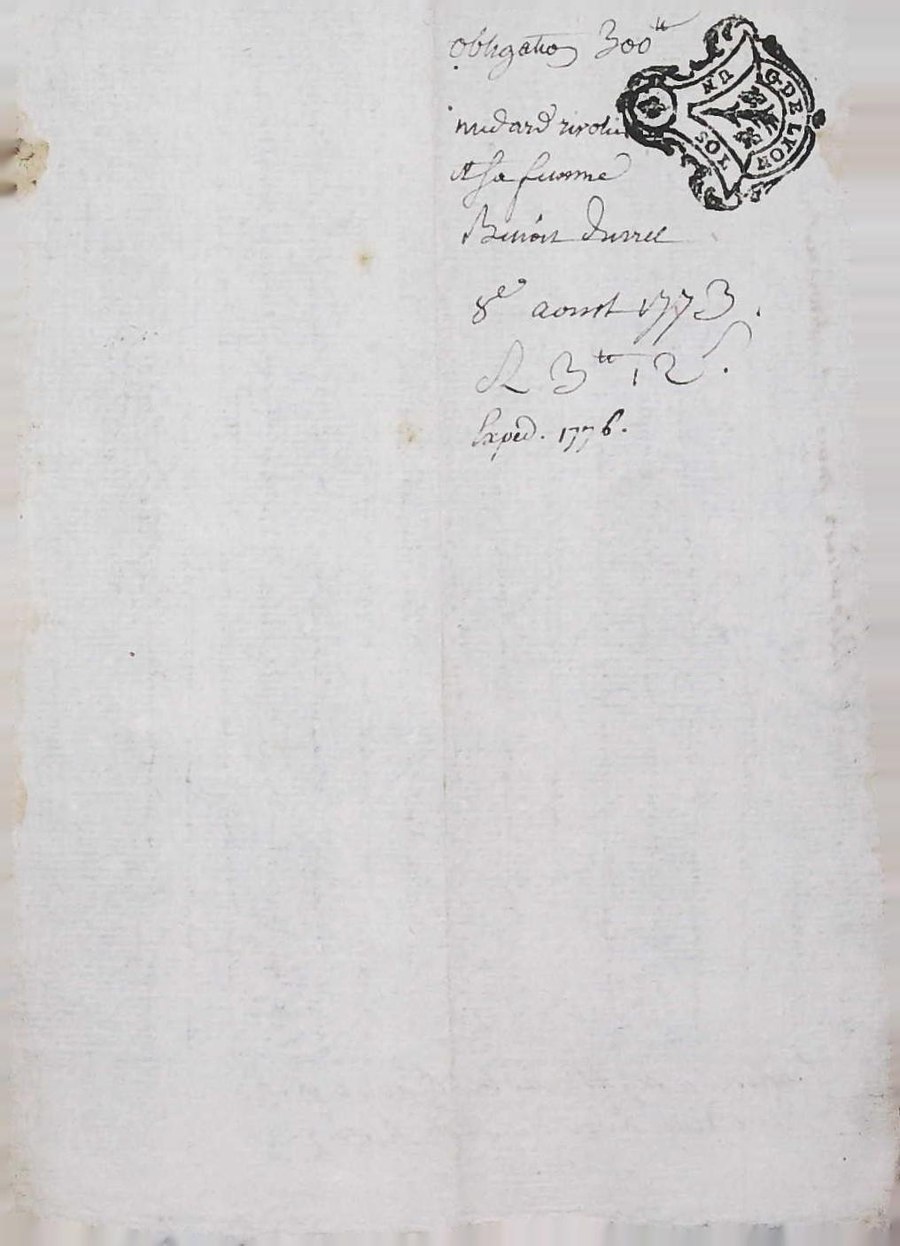 obligation 300tt
medard
et sa femme
Benoit Durret
8e aoust 1773.
R 3tt 12s.
Exped. 1776.
G. DE LYON
UN SOL